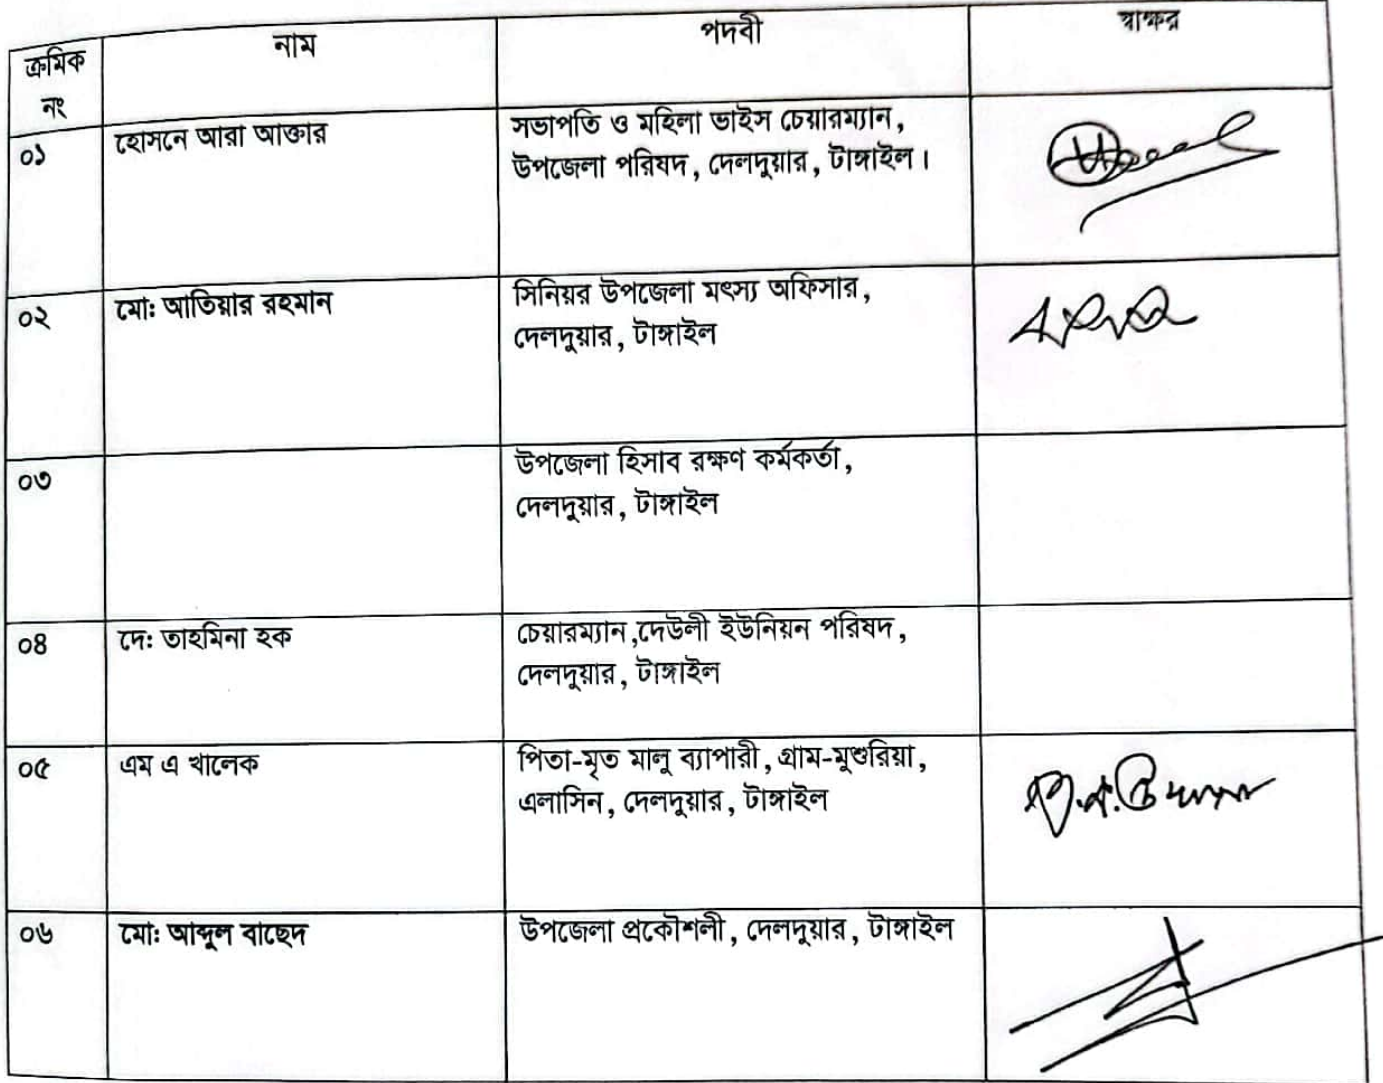 ক্রমিক নং নাম পদবী স্বাক্ষর
০১ হোসনে আরা আক্তার সভাপতি ও মহিলা ভাইস চেয়ারম্যান,
উপজেলা পরিষদ, দেলদুয়ার, টাঙ্গাইল।
০২ মো: আতিয়ার রহমান সিনিয়র উপজেলা মৎস্য অফিসার,
দেলদুয়ার, টাঙ্গাইল
০৩ উপজেলা হিসাব রক্ষণ কর্মকর্তা,
দেলদুয়ার, টাঙ্গাইল
০৪ দে: তাহমিনা হক চেয়ারম্যান,দেউলী ইউনিয়ন পরিষদ,
দেলদুয়ার, টাঙ্গাইল
০৫ এম এ খালেক পিতা-মৃত মালু ব্যাপারী, গ্রাম-মুশুরিয়া,
এলাসিন, দেলদুয়ার, টাঙ্গাইল
০৬ মো: আব্দুল বাছেদ উপজেলা প্রকৌশলী, দেলদুয়ার, টাঙ্গাইল